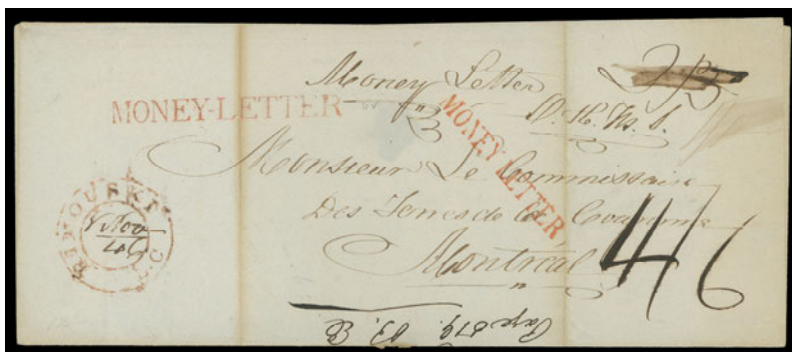 Money Letter
MONEY-LETTER
O.H.M.S.
MONEY-LETTER
Monsieur Le Commissaire
Des Terres de la Couronne
Montréal
RIMOUSKI L.C
Nov
4/6
Page 519.